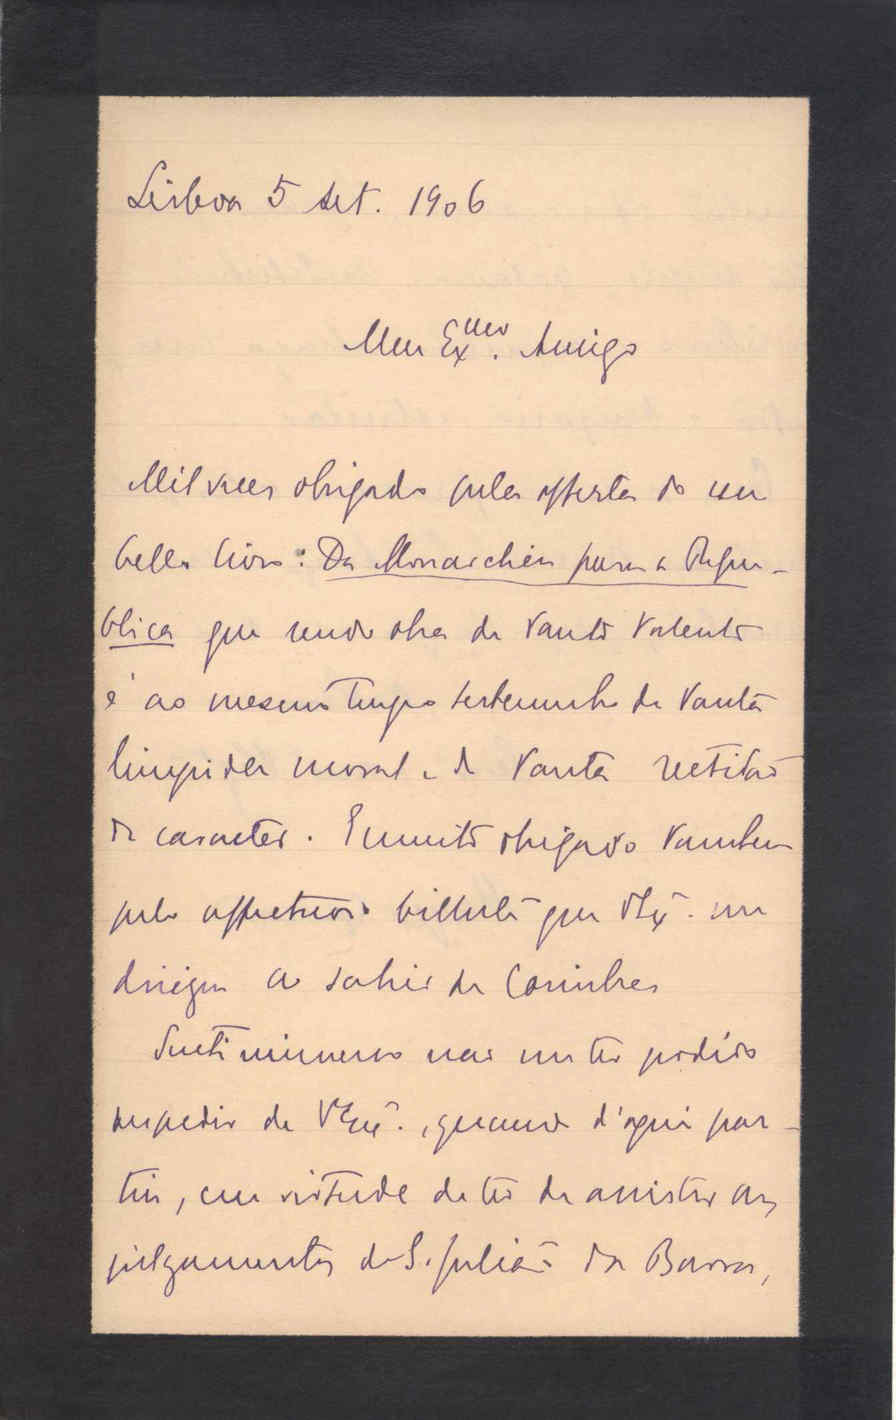 Lisboa 5 Set. 1906
Meu Ex.mo Amigo
Mil vezes obrigado pela offerta do seu
bello livro: Da Monarchia para a Repu-
blica que sendo obra de tanto talento
é ao mesmo tempo testemunho de tanta
limpidez moral e de tanta rectidão
de caracter. E muito obrigado tambem
pelo affectuoso bilhete que V. Ex.ª me
dirigiu ao sahir de Coimbra
Senti immenso não me ter podido
despedir de V. Ex.ª, quando d'aqui par-
tiu, em virtude de ter de assistir aos
julgamentos de S. Julião da Barra,